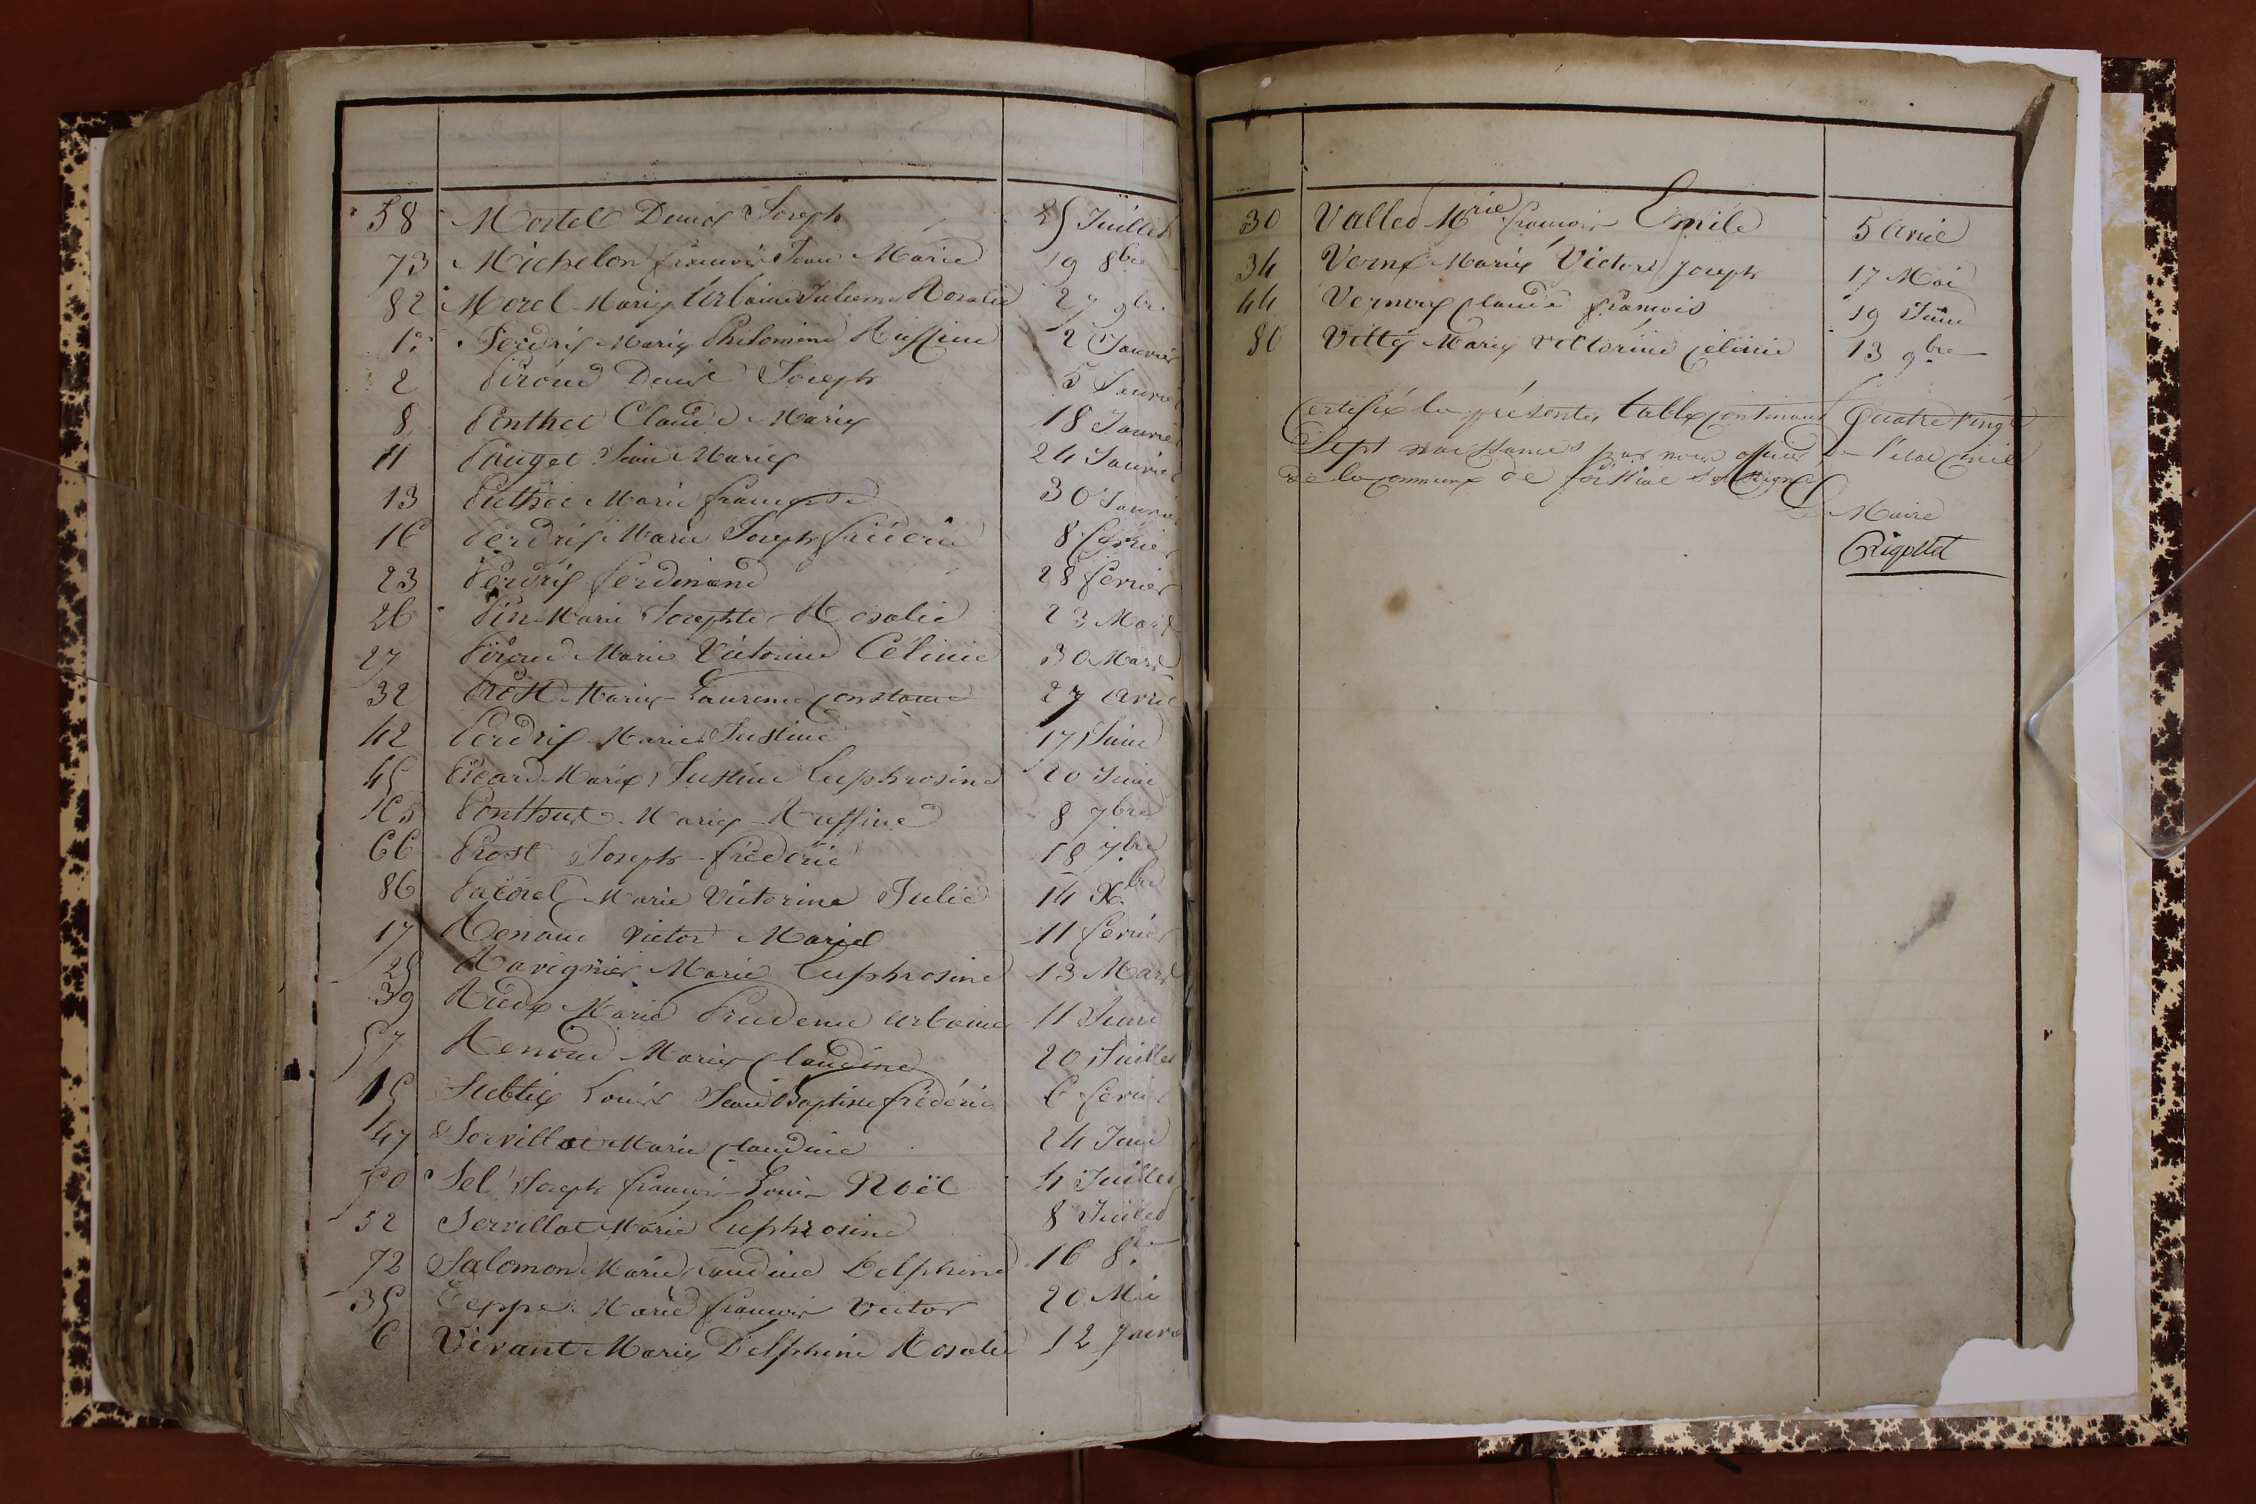 58 Mortel Denis Joseph 25 Juillet
73 Michelon françois Jean Marie 19 8bre
82 Morel Marie Urbaine Julienne Rosalie 27 9bre
1er Perdrix Marie Philomène Ruffine 2 Janvier
2 Piroud Denis Joseph 5 Janvier
8 Ponthet Claude Marie 18 Janvier
11 Pauget Jean Marie 24 Janvier
13 Puthet Marie françoise 30 Janvier
16 Perdrix Marie Joseph frédéric 8 février
23 Perdrix ferdinand 28 fevrier
26 Pin Marie Josephte Rosalie 23 Mars
27 Piroud Marie Victorine Célinie 30 Mars
32 Prost Marie Laurence Constance 27 avril
42 Perdrix Marie Justine 17 Juin
45 Picard Marie Justine Euphrosine 20 Juin
65 Ponthus Marie Ruffine 8 7bre
66 Prost Joseph frédéric 18 7bre
86 Pacorel Marie Victorine Julie 14 Xbre
17 Renaud victor Marie 11 fevrier
25 Ravignier Marie Euphrosine 13 Mars
39 Rude Marie Prudence Urbaine 11 Juin
57 Renoud Marie Claudine 20 Juillet
15 Subtil Louis Jean Baptiste frédéric 6 fevrier
47 Servillat Marie Claudine 24 Juin
50 Sel Joseph françois Louis Noël 4 Juillet
52 Servillat Marie Euphrosine 8 Juillet
72 Salomon Marie Claudine Delphine 16 8bre
35 Teppe Marie françois Victor 20 Mai
6 Vivant Marie Delphine Rosalie 12 Janvier
30 Vallet Mrie françois Emile 5 avril
34 Verne Marie Victor Joseph 17 Mai
44 Vernoux Claude françois 19 Juin
80 Vitte Marie Victorine Célinie 13 9bre
Certifié la présente table contenant Quatre Vingt
Sept naissances par nous officier de l'état civil
de la commune de soussigné
Le Maire